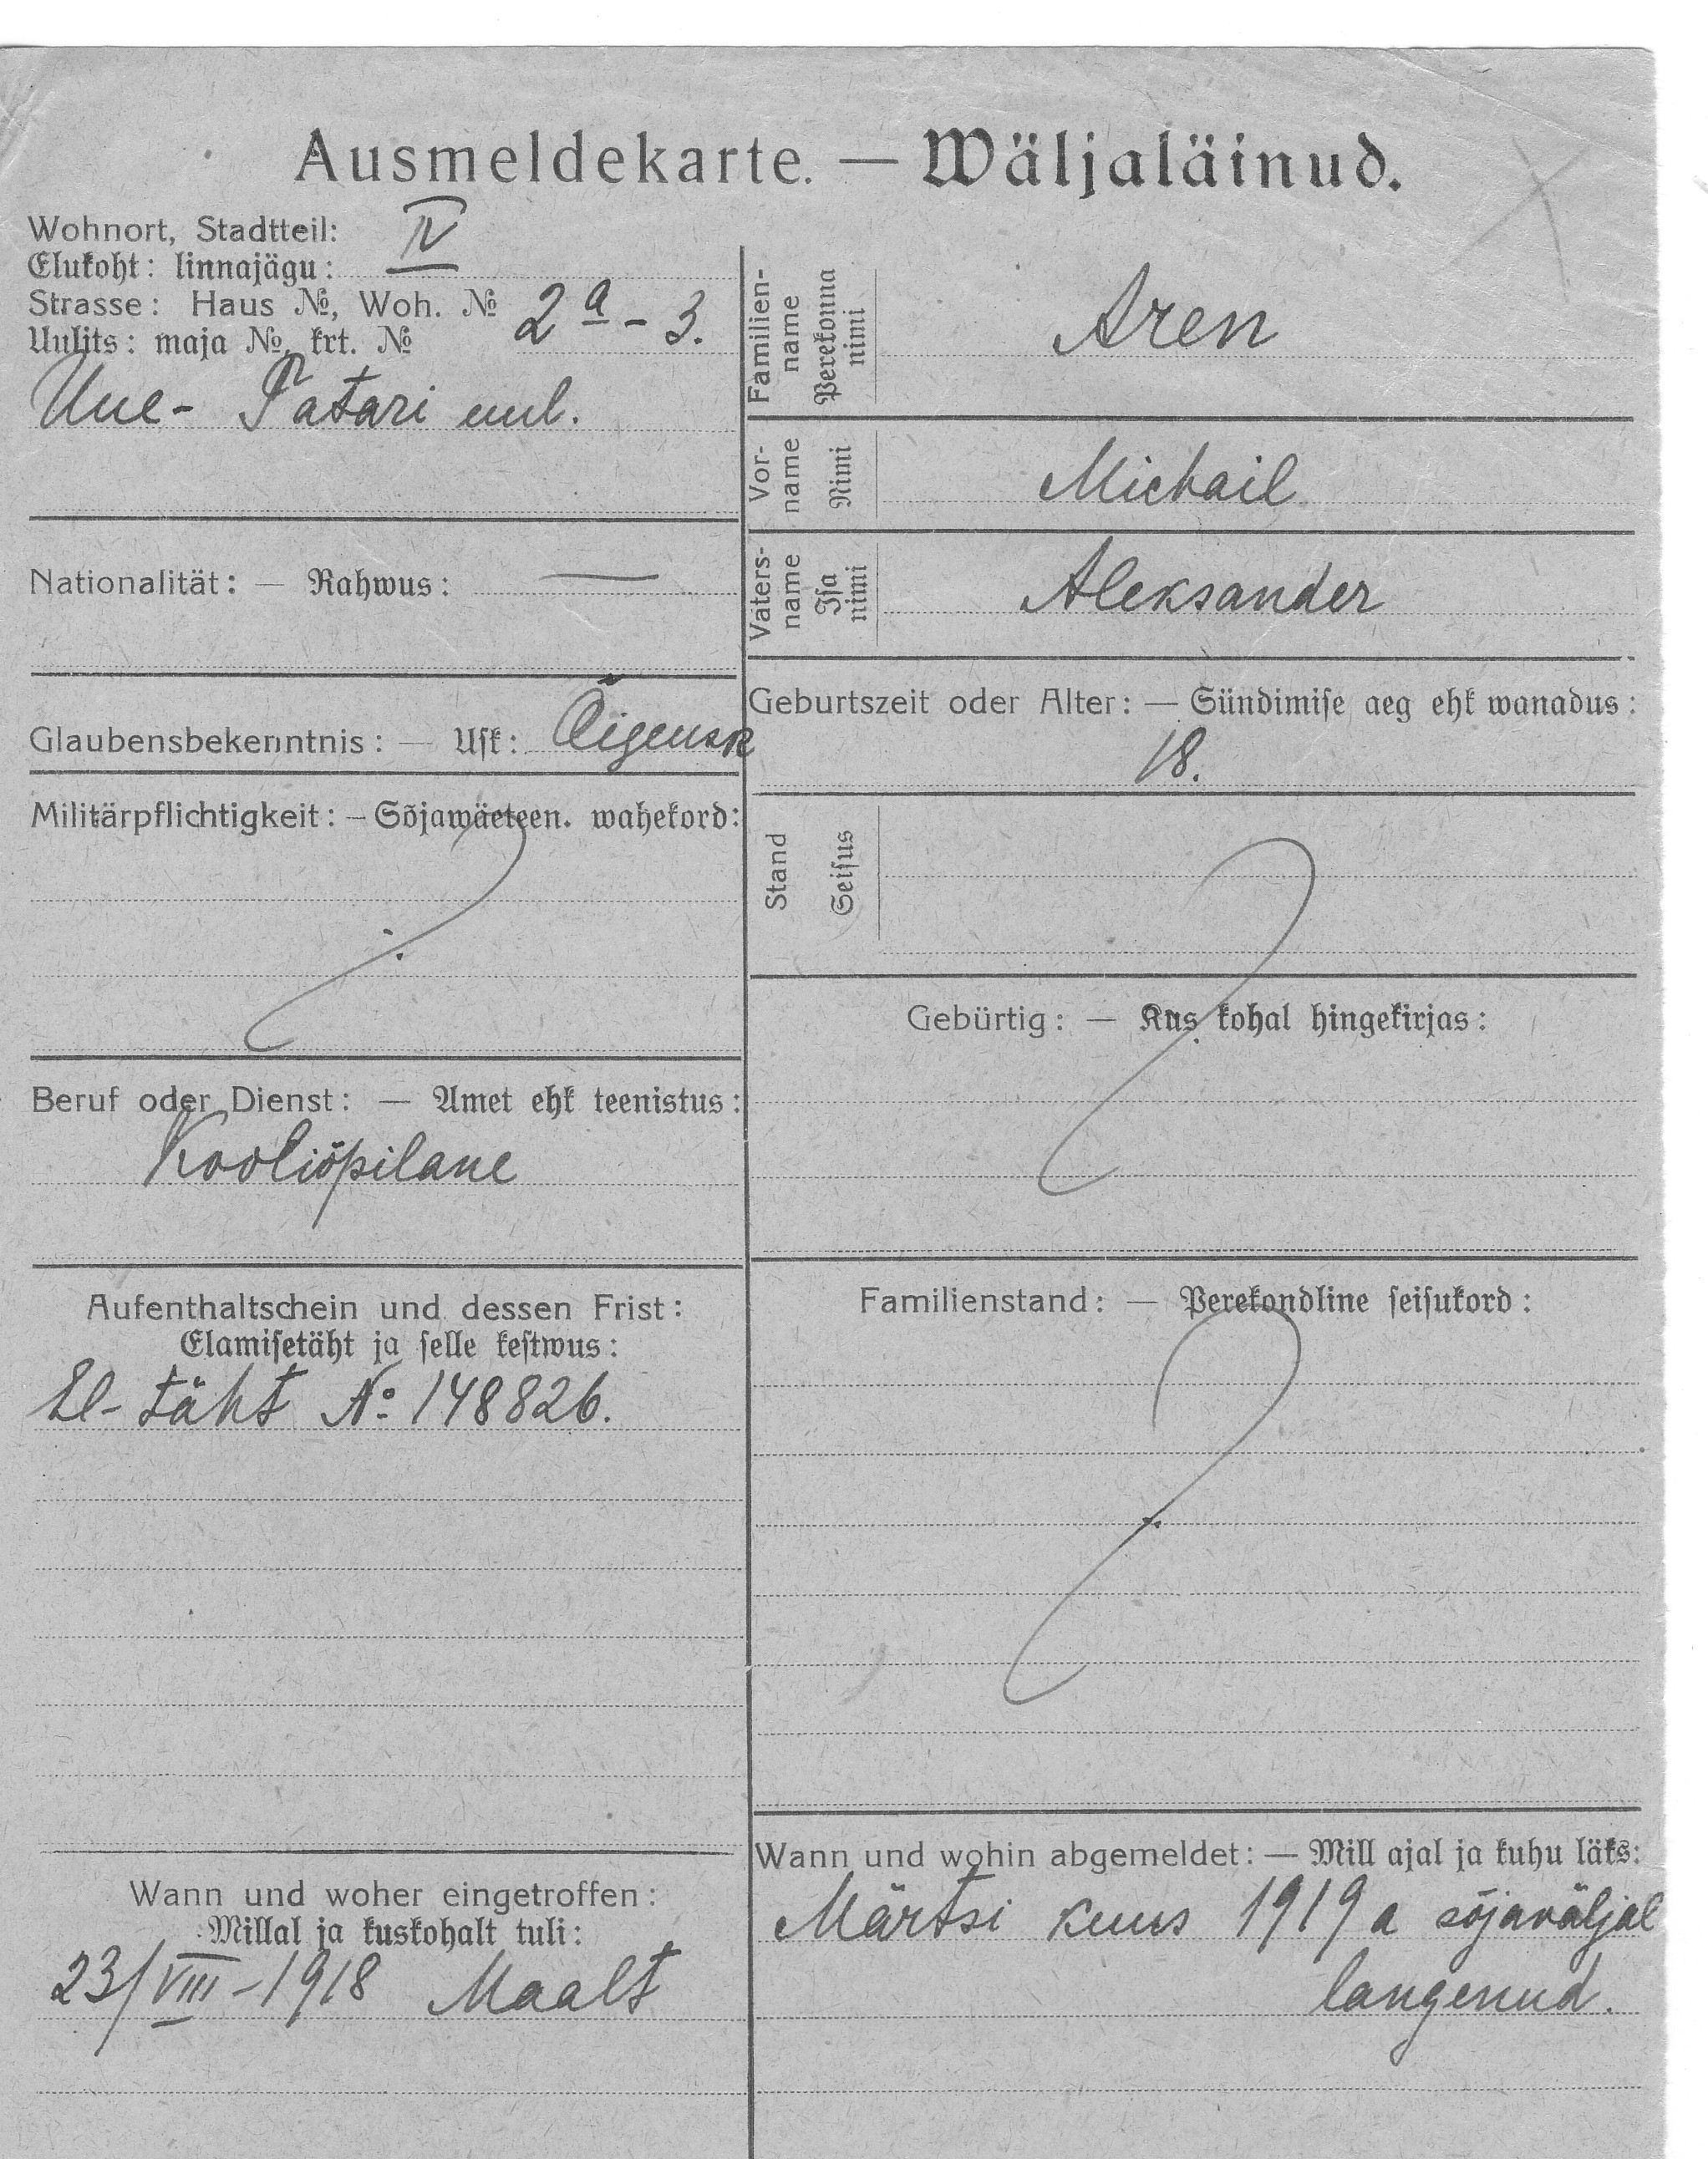 Ausmeldekarte. — Wäljaläinud.
Wohnort, Stadtteil: IV
Elukoht: linnajägu:
Strasse: Haus №, Woh. № 2a - 3.
Uulits: maja №, krt. №
Uue- Tatari uul.
Nationalität: — Rahwus: —
Glaubensbekenntnis: — Usk: Õigeusk
Militärpflichtigkeit: — Sõjawäeteen. wahekord:
?
Beruf oder Dienst: — Amet ehk teenistus:
Kooliõpilane
Aufenthaltschein und dessen Frist:
Elamisetäht ja selle kestwus:
El- täht №: 148826.
Wann und woher eingetroffen:
Millal ja kuskohalt tuli:
23/VIII-1918 Maalt
Familien-
name
Perekonna
nimi
Aren
Vor-
name
Nimi
Michail
Vaters-
name
Isa
nimi
Aleksander
Geburtszeit oder Alter: — Sündimise aeg ehk wanadus:
18.
Stand
Seisus
?
Gebürtig: — Kus kohal hingekirjas:
Familienstand: — Perekondline seisukord:
?
Wann und wohin abgemeldet: — Mill ajal ja kuhu läks:
Märtsi kuus 1919 a sõjaväljal
langenud.